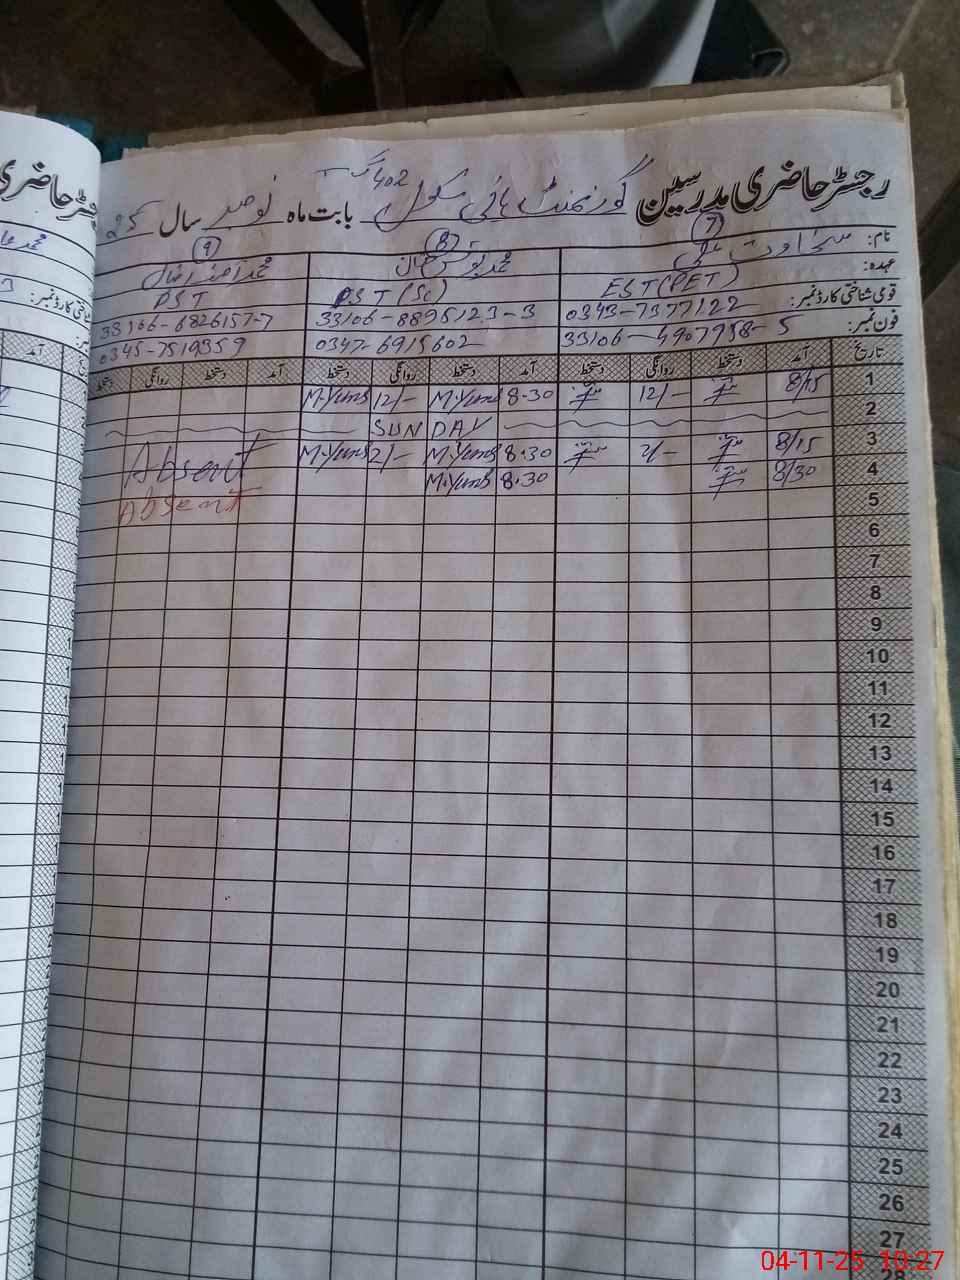 رجسٹر حاضری مدرسین گورنمنٹ ہائی سکول 402 گ ب بابت ماہ نومبر سال 25
(7) (8) (9)
نام: سخاوت علی محمد
عہدہ: EST(PET) PST(Sc) PST
قومی شناختی کارڈ نمبر: 0343-7377122 33106-8895123-3 33106-6826157-7
فون نمبر: 33106-4907958-5 0347-6915602 0345-7519359
تاریخ آمد دستخط روانگی دستخط آمد دستخط روانگی دستخط آمد دستخط روانگی دستخط
1 8/15 12/- 8.30 M.Yuns 12/- M.Yuns
2 SUNDAY
3 8/15 2/- 8.30 M.Yuns 2/- M.Yuns Absent
4 8/30 8.30 M.Yuns Absent
5
6
7
8
9
10
11
12
13
14
15
16
17
18
19
20
21
22
23
24
25
26
27
28
04-11-25 10:27